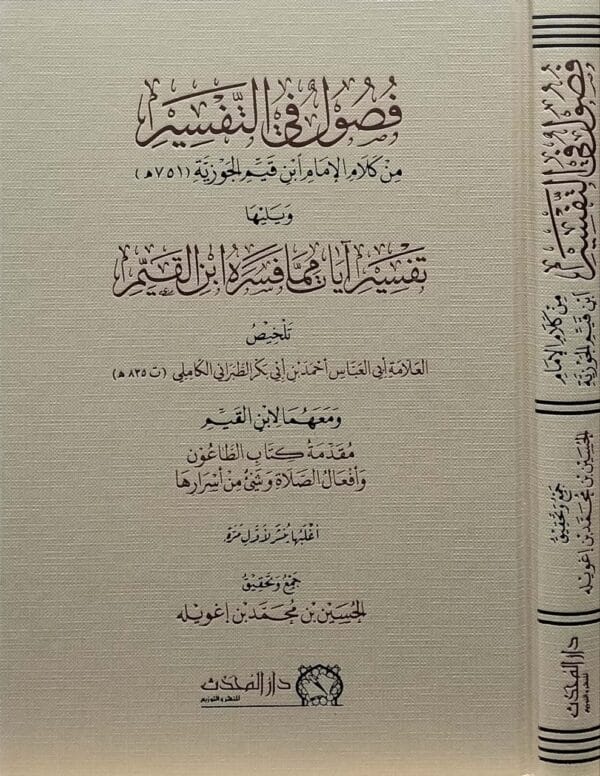 فُصُولٌ فِي التَّفْسِيرِ
مِنْ كَلَامِ الإِمَامِ ابْنِ قَيِّمِ الجَوْزِيَّةِ (٧٥١ هـ)
وَيَلِيْهَا
تَفْسِيْرُ آيَاتٍ مِمَّا فَسَّرَهُ ابْنُ القَيِّمِ
تَلْخِيْصُ
العَلَّامَةِ أَبِي العَبَّاسِ أَحْمَدَ بْنِ أَبِي بَكْرٍ الطَّبَرَانِي الكَامِلِي (ت ٨٣٥ هـ)
وَمَعَهُمَا لِابْنِ القَيِّمِ
مُقَدِّمَةُ كِتَابِ الطَّاعُوْنِ
وَأَفْعَالُ الصَّلَاةِ وَشَيْءٌ مِنْ أَسْرَارِهَا
أَغْلَبُهَا يُنْشَرُ لِأَوَّلِ مَرَّةٍ
جَمْعُ وَتَحْقِيْقُ
الحُسَيْنِ بْنِ مُحَمَّدِ بْنِ إِغَوِيله
دار المحدث
للنشر والتوزيع
فُصُولٌ فِي التَّفْسِيرِ
مِنْ كَلَامِ الإِمَامِ
ابْنِ قَيِّمِ الجَوْزِيَّةِ
جَمْعُ وَتَحْقِيْقُ
الحُسَيْنِ بْنِ مُحَمَّدِ بْنِ إِغَوِيله
دار المحدث
للنشر والتوزيع